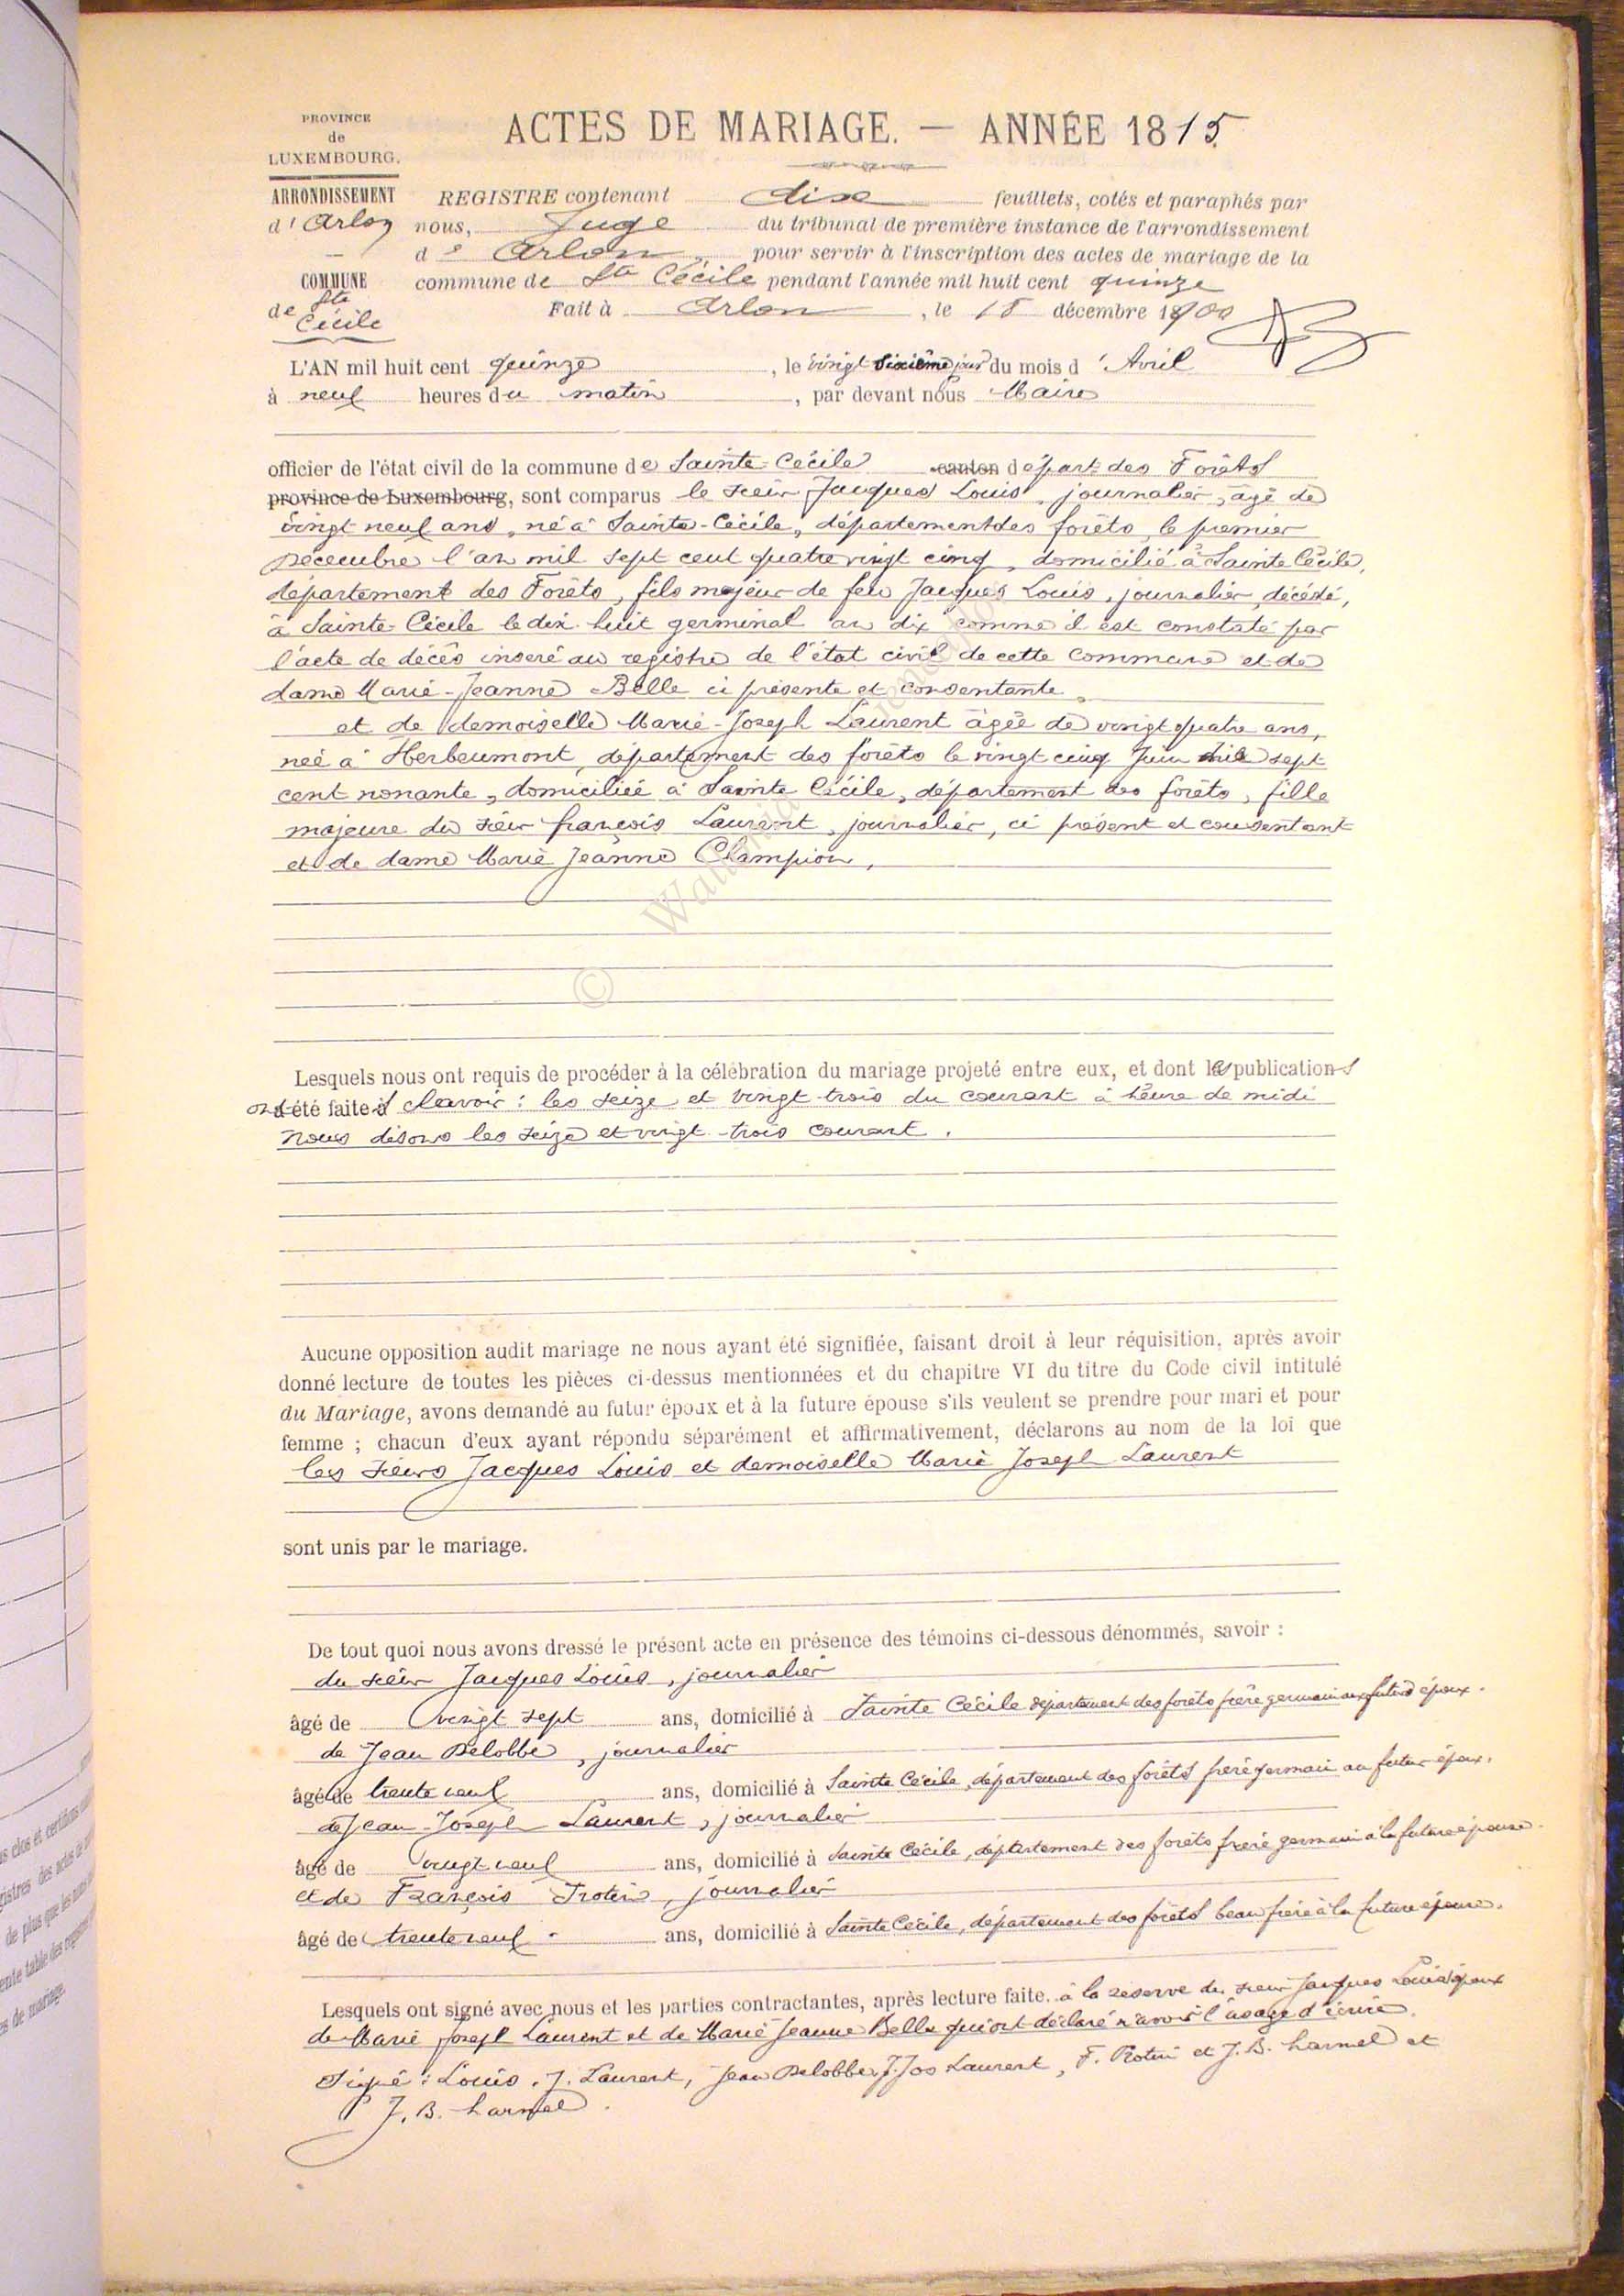 PROVINCE
de
LUXEMBOURG.
ACTES DE MARIAGE. — ANNÉE 1815
ARRONDISSEMENT
d'Arlon
COMMUNE
de Ste
Cécile
REGISTRE contenant dix feuillets, cotés et paraphés par
nous, Juge du tribunal de première instance de l'arrondissement
d' Arlon, pour servir à l'inscription des actes de mariage de la
commune de Ste Cécile pendant l'année mil huit cent quinze
Fait à Arlon, le 18 décembre 1900
L'AN mil huit cent quinze, le vingt sixième jour du mois d'Avril
à neuf heures du matin, par devant nous Maire
officier de l'état civil de la commune de Sainte-Cécile canton départ. des Forêts
province de Luxembourg, sont comparus le sieur Jacques Louis, journalier, âgé de
vingt neuf ans, né à Sainte-Cécile, département des forêts, le premier
Décembre l'an mil sept cent quatre vingt cinq, domicilié à Sainte Cécile,
département des Forêts, fils majeur de feu Jacques Louis, journalier, décédé,
à Sainte-Cécile le dix huit germinal an dix comme il est constaté par
l'acte de décès inseré au registre de l'état civil de cette commune et de
dame Marie-Jeanne Belle ci présente et consentante,
et de demoiselle Marie-Joseph Laurent âgée de vingt quatre ans,
née à Herbeumont, département des forêts le vingt cinq Juin mil sept
cent nonante, domiciliée à Sainte Cécile, département des forêts, fille
majeure du sieur françois Laurent, journalier, ci présent et consentant
et de dame Marie Jeanne Champion,
Lesquels nous ont requis de procéder à la célébration du mariage projeté entre eux, et dont les publications
ont été faites savoir : les seize et vingt-trois du courant à heure de midi
nous disons les seize et vingt-trois courant.
Aucune opposition audit mariage ne nous ayant été signifiée, faisant droit à leur réquisition, après avoir
donné lecture de toutes les pièces ci-dessus mentionnées et du chapitre VI du titre du Code civil intitulé
du Mariage, avons demandé au futur époux et à la future épouse s'ils veulent se prendre pour mari et pour
femme ; chacun d'eux ayant répondu séparément et affirmativement, déclarons au nom de la loi que
les sieurs Jacques Louis et demoiselle Marie Joseph Laurent
sont unis par le mariage.
De tout quoi nous avons dressé le présent acte en présence des témoins ci-dessous dénommés, savoir :
du sieur Jacques Louis, journalier
âgé de vingt sept ans, domicilié à Sainte Cécile département des forêts frère germain au futur époux.
de Jean Delobbe, journalier
âgé de trente neuf ans, domicilié à Sainte Cécile, département des forêts frère germain au futur époux.
de Jean-Joseph Laurent, journalier
âgé de vingt neuf ans, domicilié à Sainte Cécile, département des forêts frère germain à la future épouse.
et de François Protin, journalier
âgé de trente neuf ans, domicilié à Sainte Cécile, département des forêts beau frère à la future épouse.
Lesquels ont signé avec nous et les parties contractantes, après lecture faite. à la réserve du sieur Jacques Louis époux
de Marie Joseph Laurent et de Marie Jeanne Belle qui ont déclaré n'avoir l'usage d'écrire.
Signé : Louis. J. Laurent, Jean Delobbe, J. Jos Laurent, F. Protin et J. B. harmel et
J. B. harmel.